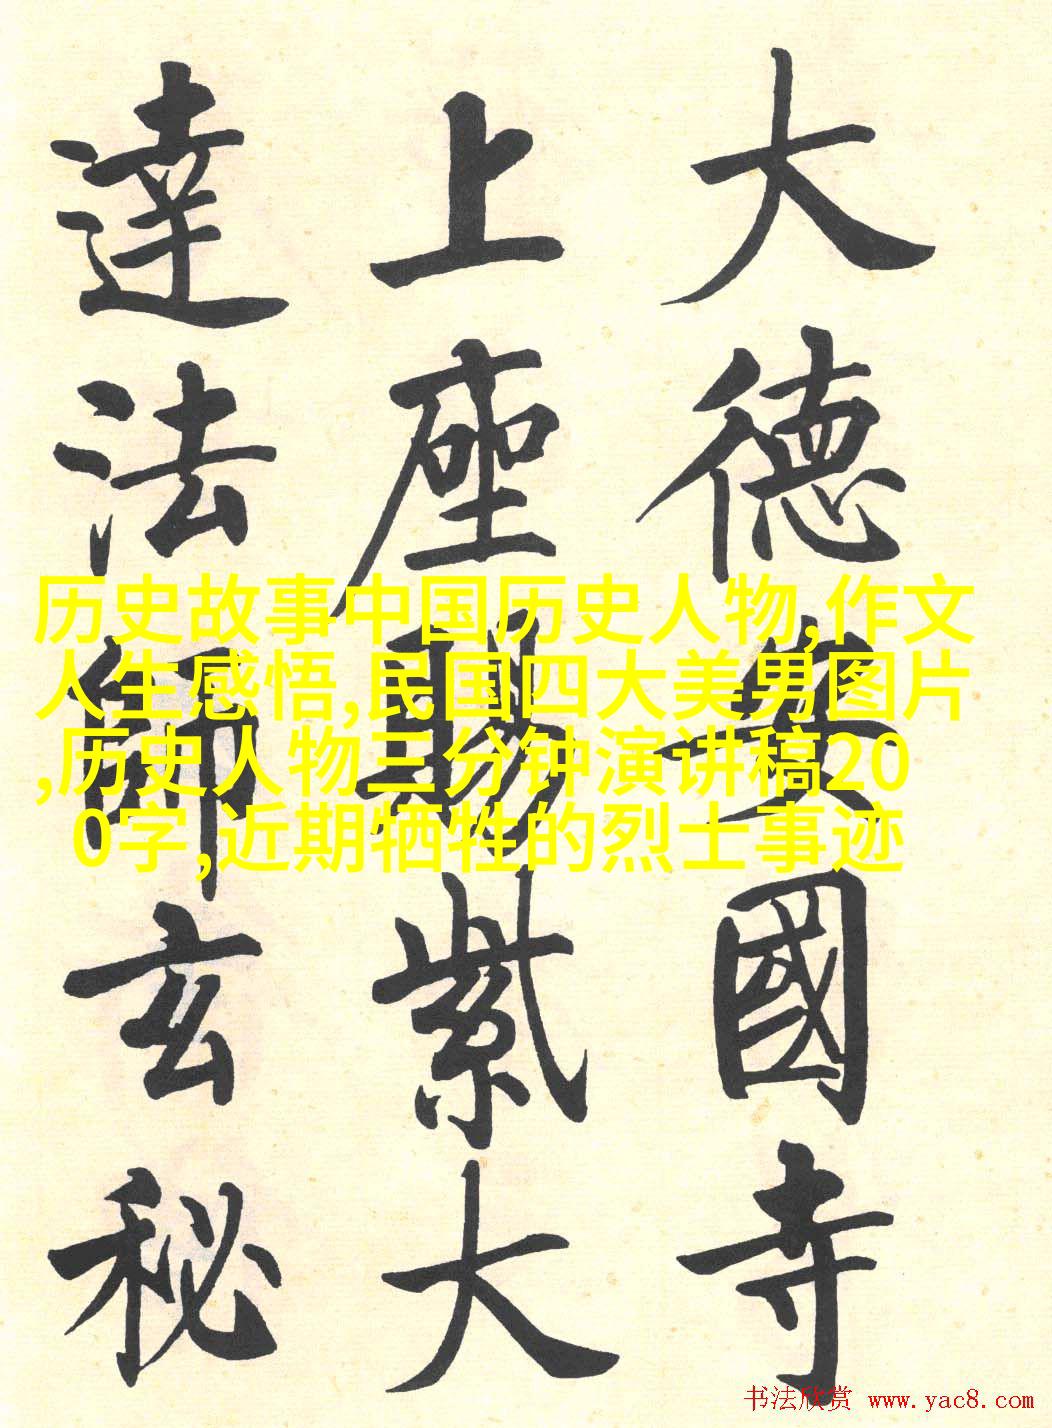 大德安國寺
上座賜紫大
達法師玄秘
历史故事中国历史人物,作文
人生感悟,民国四大美男图片
,历史人物三分钟演讲稿20
0字,近期牺牲的烈士事迹
书法欣赏 www.yac8.com